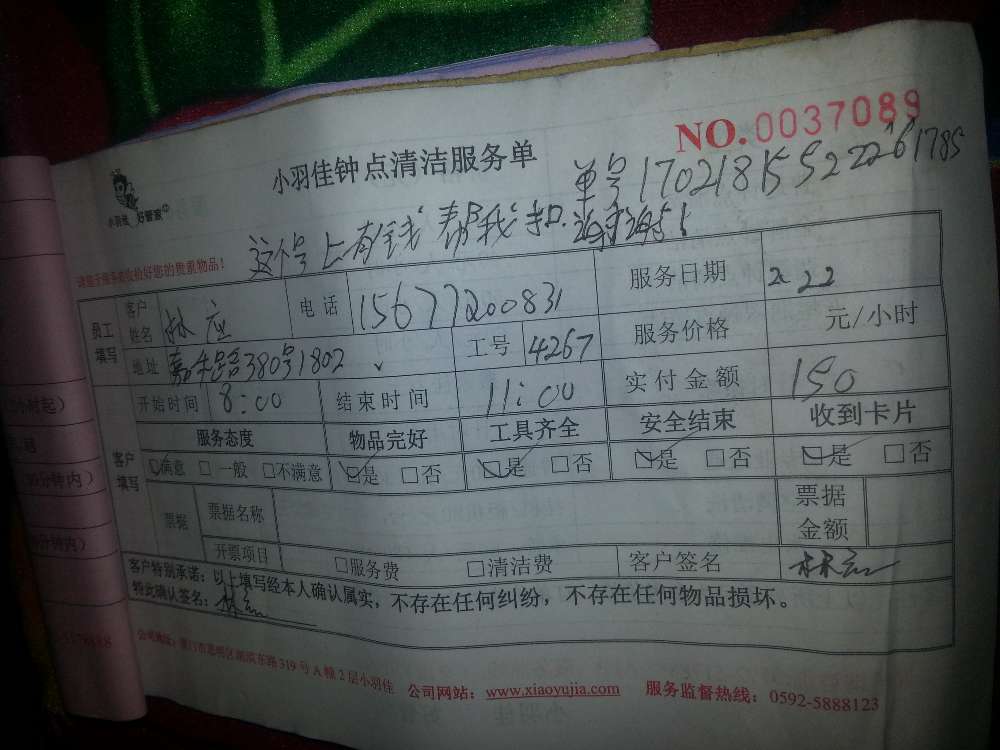 NO.0037089
小羽佳钟点清洁服务单
小羽佳 好管家
单号170218155222261785
这个号上有钱 帮我扣.谢谢!
请提示服务者收检好您的贵重物品!
员工填写 客户姓名 林应 电话 15677200831 服务日期 2.22
地址 嘉禾路380号1802 工号 4267 服务价格 元/小时
开始时间 8:00 结束时间 11:00 实付金额 150
客户填写 服务态度 物品完好 工具齐全 安全结束 收到卡片
☑满意 □一般 □不满意 ☑是 □否 ☑是 □否 ☑是 □否 ☑是 □否
票据 票据名称 票据金额
开票项目 □服务费 □清洁费 客户签名
客户特别承诺:以上填写经本人确认属实,不存在任何纠纷,不存在任何物品损坏。
特此确认签名:
公司地址:厦门市思明区湖滨东路319号A幢2层小羽佳 公司网站:www.xiaoyujia.com 服务监督热线:0592-5888123